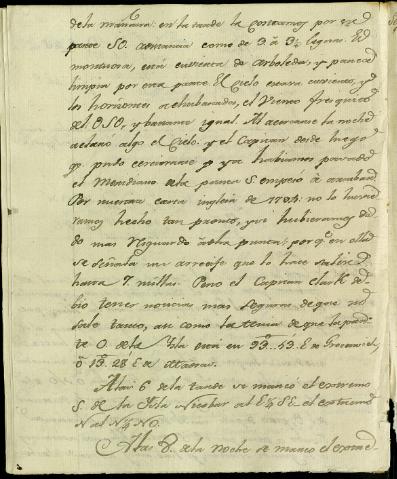 de la mañana: en la tarde la costeamos por su
parte SO. a distancia como de 3 à 3½ leguas. Es
montuosa, está cubierta de arboleda, y parece
limpia por esta parte. El Cielo estaba cubierto, y
los horizontes achubascados, el Viento fresquito
del OSO, y bastante igual. Al acercarse la noche
aclaró algo el Cielo. y el Capitan desde luego
q.e pudo cerciorarse q.e ya habiamos pasado
el Meridiano de la punta S. empezó à arribar
Por nuestra carta inglesa de 1794. no lo hubie-
ramos hecho tan pronto, y si hubieramos da-
do mas resguardo à dha punta; por q.e en ella
se señala un arrecife que lo hace salir
hasta 7. millas. Pero el Capitan Clark de-
bio tener noticias mas seguras de que no
sale tanto, asi como la tenia de que la par-
te O. de la Isla está en 93.. 43. E. de Greenwich
ô 13.. 28' E de Madras.
A las 6 de la tarde se marcó el extremo
S. de la Isla Nicobar al E¼SE.. el extremo
N al N¼NO.
A las 8. de la noche se marcó el extre-